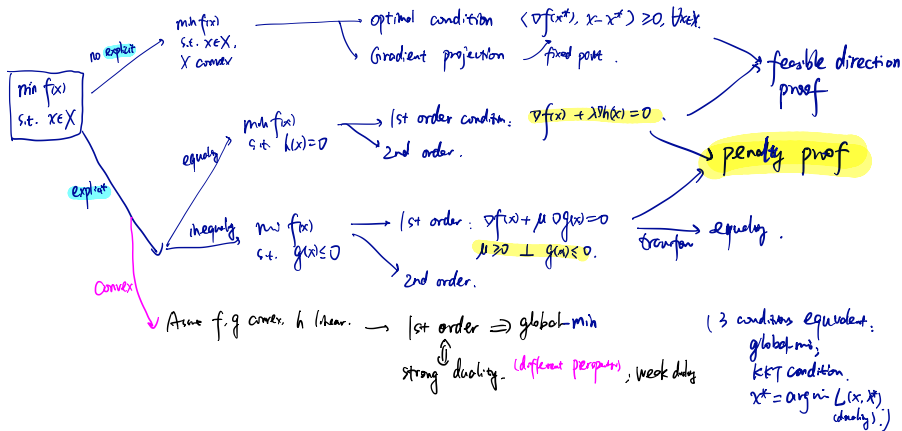 min f(x)
s.t. x∈X
no explicit
min f(x)
s.t. x∈X,
X convex
optimal condition ⟨∇f(x*), x-x*⟩ ≥0, ∀x∈X.
Gradient projection
fixed point.
feasible direction
proof
equality
min f(x)
s.t. h(x)=0
1st order condition: ∇f(x) + λ∇h(x) = 0.
2nd order.
penalty proof
explicit
inequality
min f(x)
s.t. g(x)≤0
1st order: ∇f(x) + μ∇g(x)=0
μ≥0 ⊥ g(x)≤0.
2nd order.
transform
equality.
Convex
Assume f, g convex, h linear.
1st order ⇒ global min
⇕
strong duality. (different perspective), weak duality
(3 conditions equivalent:
global min;
KKT condition.
x* = argmin L(x, λ*)
(duality).)